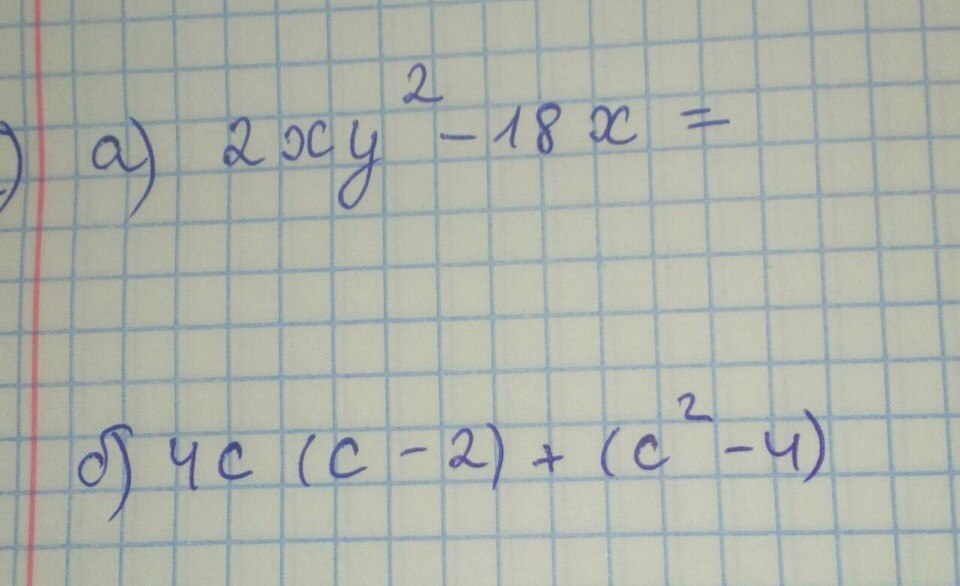 ) а) 2xy² - 18x =
б) 4c (c - 2) + (c² - 4)